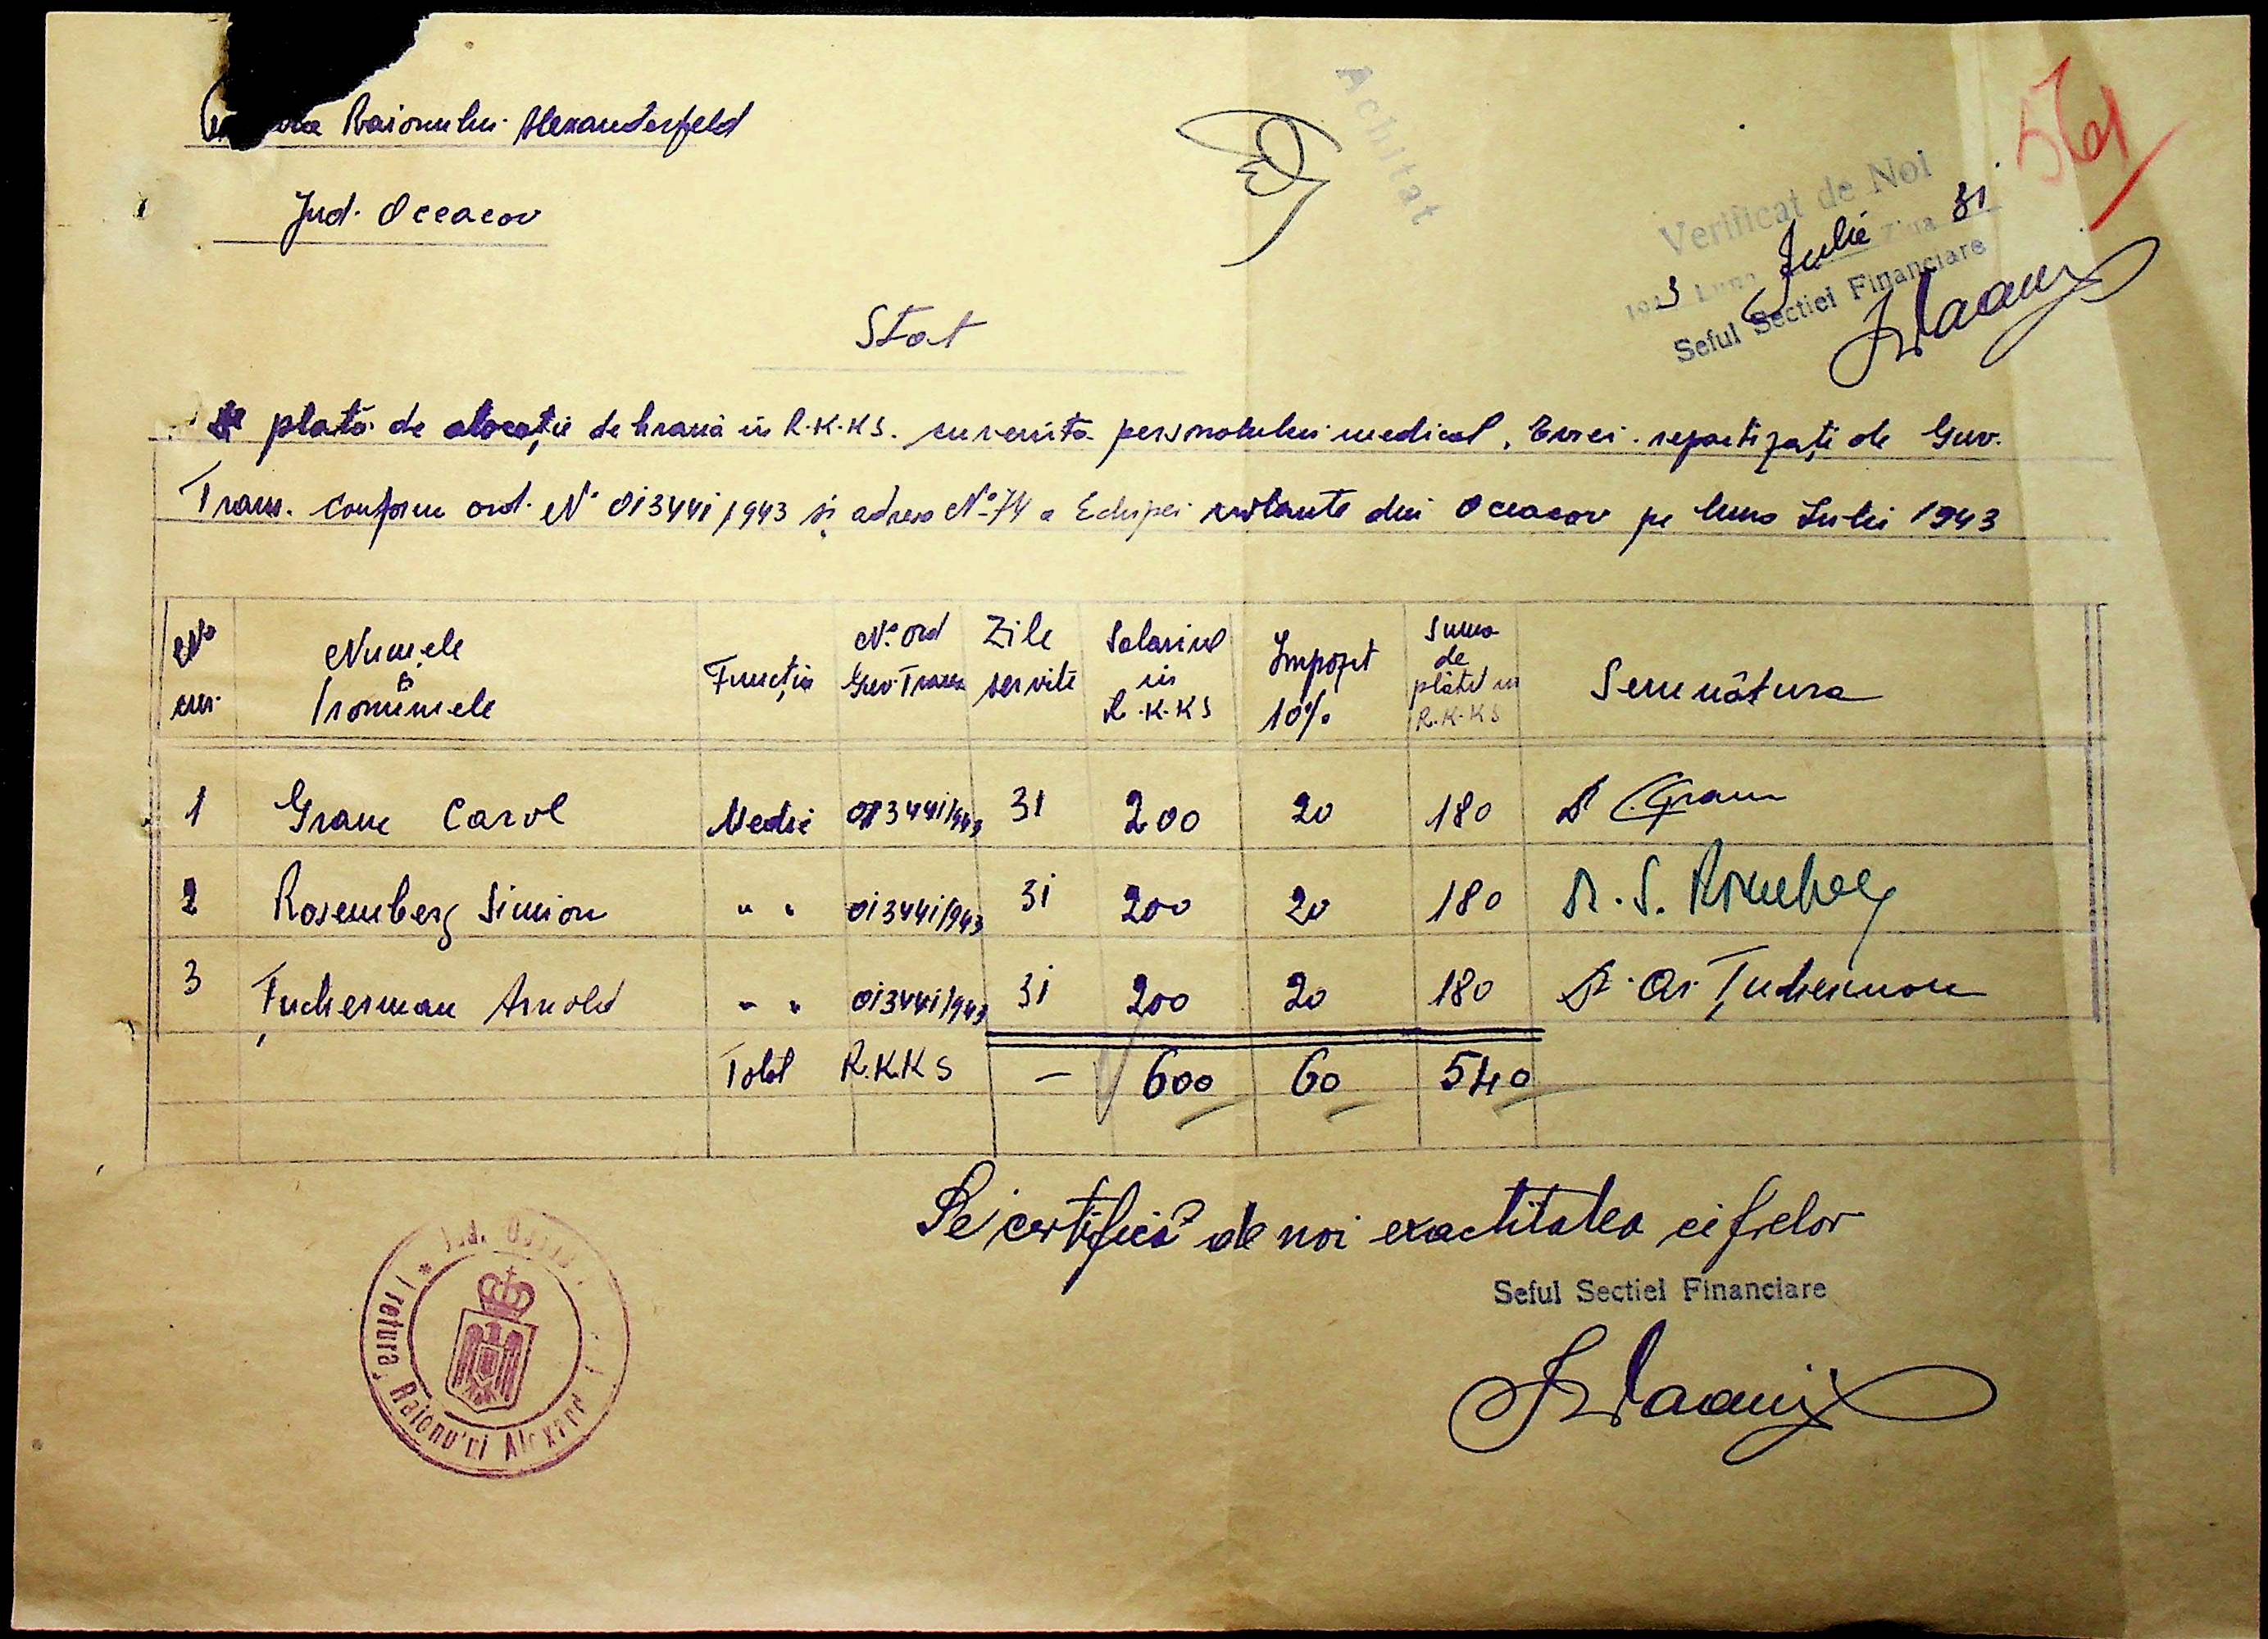 Raionului Alexanderfeld
Jud. Oceacov
Achitat
561
Verificat de Noi
1943 Luna Julie Ziua 31
Seful Sectiei Financiare
Stat
de plată de alocație de hrană in R.K.K.S. cuvenita personalului medical, Evrei repartizați de Guv.
Trans. Conform ord. No 013441/943 și adresa No 74 a Echipei zvolante din Oceacov pe luna Iulie 1943
No Numele Funcția No. ord Zile Salariul Impozit Suma Semnătura
crt. și Guv. Trans servite in 10% de
Pronumele R.K.KS plătit in
R.K.KS
1 Graur Carol Medic 013441/943 31 200 20 180 Dr. C. Graur
2 Rosemberg Simion " " 013441/943 31 200 20 180 Dr. S. Rosemberg
3 Țucherman Arnold " " 013441/943 31 200 20 180 Dr. Ar. Țucherman
Total R.K.K S — 600 60 540
Se certifică de noi exactitatea cifrelor
Seful Sectiei Financiare
Jud.
Pretura Raionului